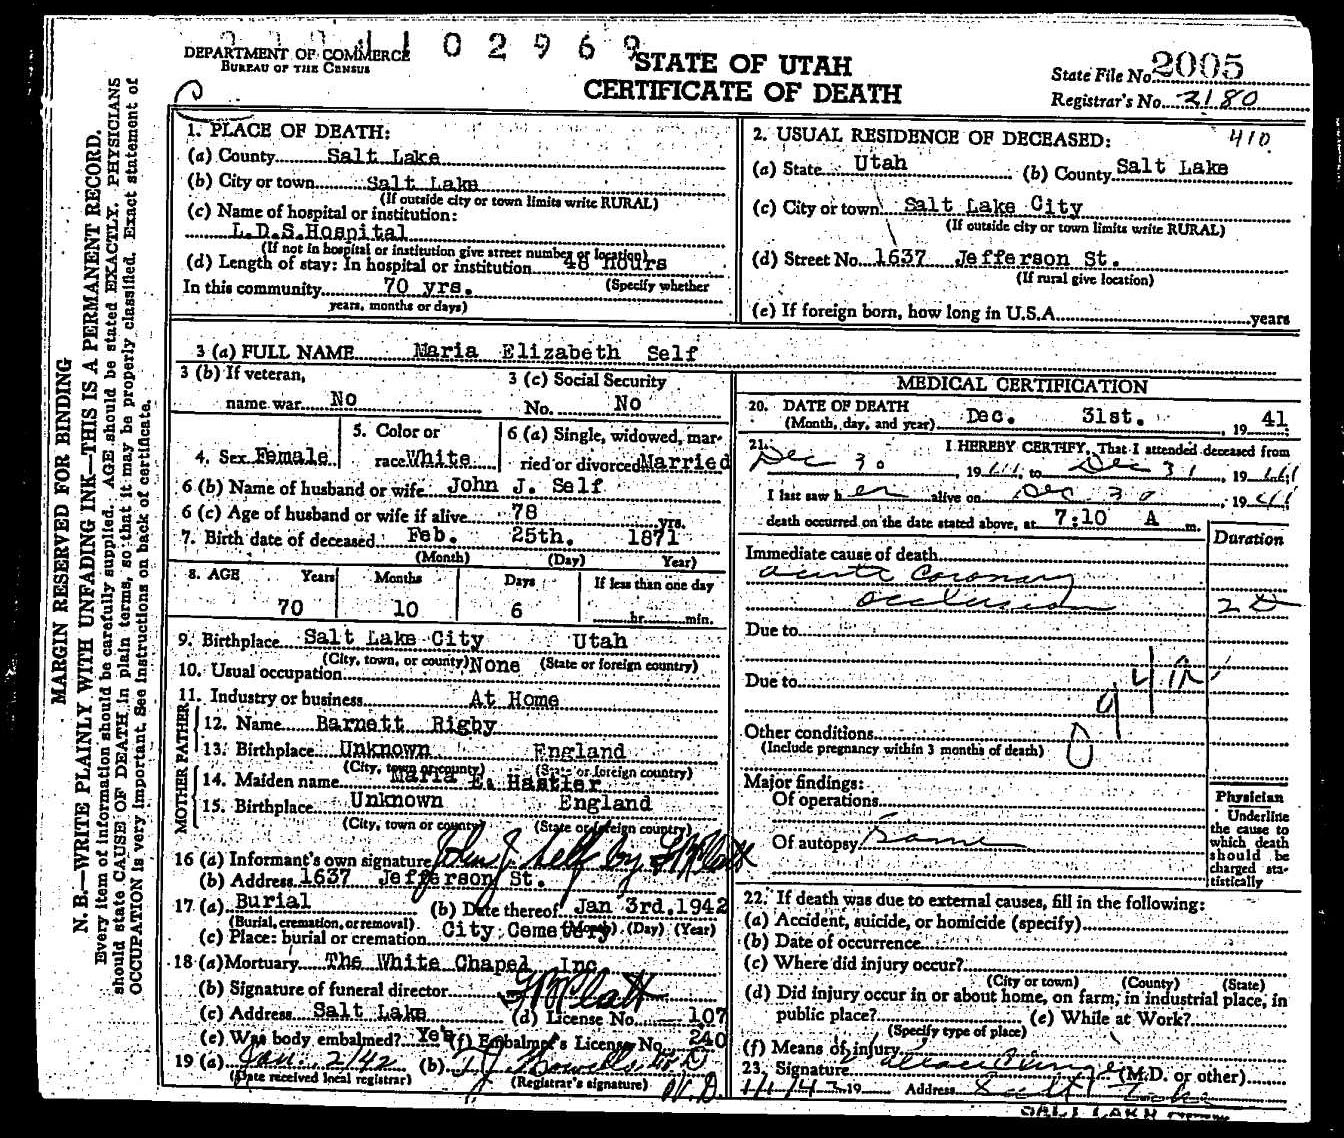 02969
DEPARTMENT OF COMMERCE
BUREAU OF THE CENSUS
STATE OF UTAH
CERTIFICATE OF DEATH
State File No. 2005
Registrar's No. 2180
MARGIN RESERVED FOR BINDING
N. B.—WRITE PLAINLY WITH UNFADING INK—THIS IS A PERMANENT RECORD.
Every item of information should be carefully supplied. AGE should be stated EXACTLY. PHYSICIANS
should state CAUSE OF DEATH in plain terms, so that it may be properly classified. Exact statement of
OCCUPATION is very important. See instructions on back of certificate.
1. PLACE OF DEATH:
(a) County Salt Lake
(b) City or town Salt Lake
(If outside city or town limits write RURAL)
(c) Name of hospital or institution:
L.D.S.Hospital
(If not in hospital or institution give street number or location)
(d) Length of stay: In hospital or institution 48 hours
In this community 70 yrs. (Specify whether
years, months or days)
2. USUAL RESIDENCE OF DECEASED: 410
(a) State Utah (b) County Salt Lake
(c) City or town Salt Lake City
(If outside city or town limits write RURAL)
(d) Street No. 1637 Jefferson St.
(If rural give location)
(e) If foreign born, how long in U.S.A. years
3 (a) FULL NAME Maria Elizabeth Self
3 (b) If veteran,
name war No
3 (c) Social Security
No. No
4. Sex Female
5. Color or
race White
6 (a) Single, widowed, mar-
ried or divorced Married
6 (b) Name of husband or wife John J. Self
6 (c) Age of husband or wife if alive 78 yrs.
7. Birth date of deceased Feb. 25th. 1871
(Month) (Day) Year)
8. AGE Years Months Days If less than one day
70 10 6 hr. min.
9. Birthplace Salt Lake City Utah
(City, town, or county) (State or foreign country)
10. Usual occupation None
11. Industry or business At Home
FATHER
12. Name Barnett Rigby
13. Birthplace Unknown England
(City, town or county) (State or foreign country)
MOTHER
14. Maiden name Maria E. Hasler
15. Birthplace Unknown England
(City, town or county) (State or foreign country)
16 (a) Informant's own signature John J. Self by
(b) Address 1637 Jefferson St.
17 (a) Burial (b) Date thereof Jan 3rd.1942
(Burial, cremation, or removal) (Month) (Day) (Year)
(c) Place: burial or cremation City Cemetery
18 (a) Mortuary The White Chapel Inc
(b) Signature of funeral director
(c) Address Salt Lake (d) License No. 107
(e) Was body embalmed? Yes (f) Embalmer's License No. 240
19 (a) Jan. 2/42 (b)
(Date received local registrar) (Registrar's signature)
MEDICAL CERTIFICATION
20. DATE OF DEATH
(Month, day, and year) Dec. 31st. , 19 41
21. I HEREBY CERTIFY, That I attended deceased from
Dec 30 19 41, to Dec 31, 19 41
I last saw h er alive on Dec 30, 19 41
death occurred on the date stated above, at 7:10 A m.
Duration
Immediate cause of death
acute Coronary
occlusion 2 D
Due to
Due to
94a
Other conditions
(Include pregnancy within 3 months of death)
Major findings:
Of operations
Of autopsy Same
Physician
Underline
the cause to
which death
should be
charged sta-
tistically
22. If death was due to external causes, fill in the following:
(a) Accident, suicide, or homicide (specify)
(b) Date of occurrence
(c) Where did injury occur?
(City or town) (County) (State)
(d) Did injury occur in or about home, on farm, in industrial place, in
public place? (e) While at Work?
(Specify type of place)
(f) Means of injury
23. Signature (M.D. or other)
19 Address Salt Lake